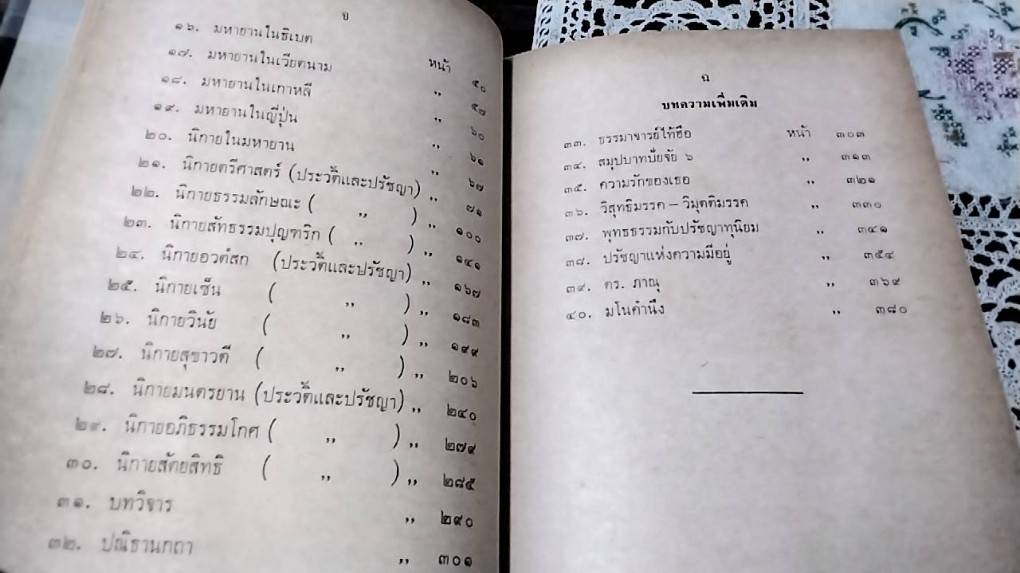 ๑๖. มหายานในธิเบต หน้า ๕๐
๑๗. มหายานในเวียดนาม ,, ๕๗
๑๘. มหายานในเกาหลี ,, ๖๐
๑๙. มหายานในญี่ปุ่น ,, ๖๑
๒๐. นิกายในมหายาน ,, ๖๗
๒๑. นิกายตรีศาสตร์ (ประวัติและปรัชญา) ,, ๗๑
๒๒. นิกายธรรมลักษณะ ( ,, ) ,, ๑๐๐
๒๓. นิกายสัทธรรมปุญฑริก ( ,, ) ,, ๑๔๑
๒๔. นิกายอวตํสก (ประวัติและปรัชญา) ,, ๑๖๗
๒๕. นิกายเซ็น ( ,, ) ,, ๑๘๓
๒๖. นิกายวินัย ( ,, ) ,, ๑๙๙
๒๗. นิกายสุขาวดี ( ,, ) ,, ๒๐๖
๒๘. นิกายมนตรยาน (ประวัติและปรัชญา) ,, ๒๔๐
๒๙. นิกายอภิธรรมโกศ ( ,, ) ,, ๒๗๙
๓๐. นิกายสัตยสิทธิ ( ,, ) ,, ๒๘๕
๓๑. บทวิจาร ,, ๒๙๐
๓๒. ปณิธานกถา ,, ๓๐๑
บทความเพิ่มเติม
๓๓. ธรรมาจารย์ไท้ฮือ หน้า ๓๐๓
๓๔. สมุปบาทปัยจัย ๖ ,, ๓๑๓
๓๕. ความรักของเธอ ,, ๓๒๑
๓๖. วิสุทธิมรรค – วิมุตติมรรค ,, ๓๓๐
๓๗. พุทธธรรมกับปรัชญาทุนิยม ,, ๓๔๑
๓๘. ปรัชญาแห่งความมีอยู่ ,, ๓๕๔
๓๙. ดร. ภาณุ ,, ๓๖๙
๔๐. มโนคำนึง ,, ๓๘๐